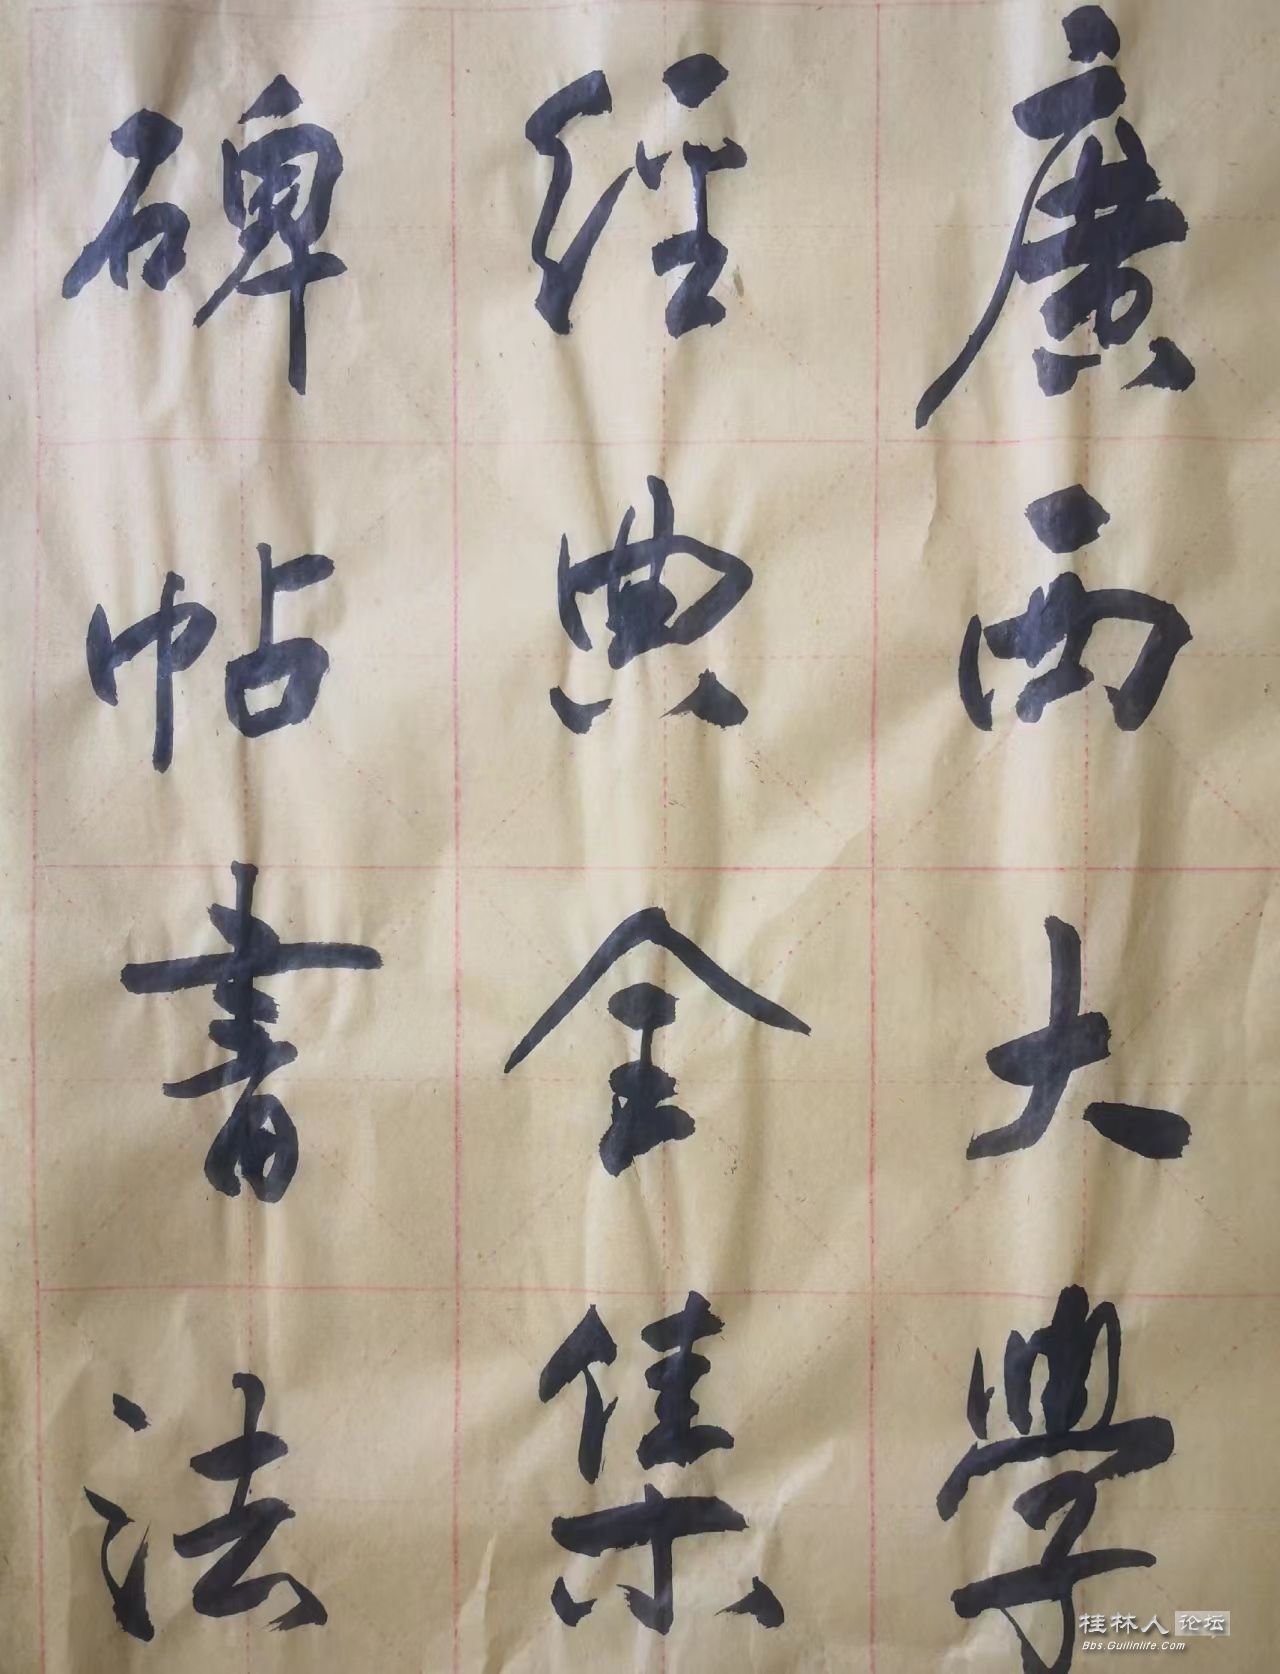 廣西大學
經典全集
碑帖書法
桂林人论坛
Bbs.Guilinlife.Com